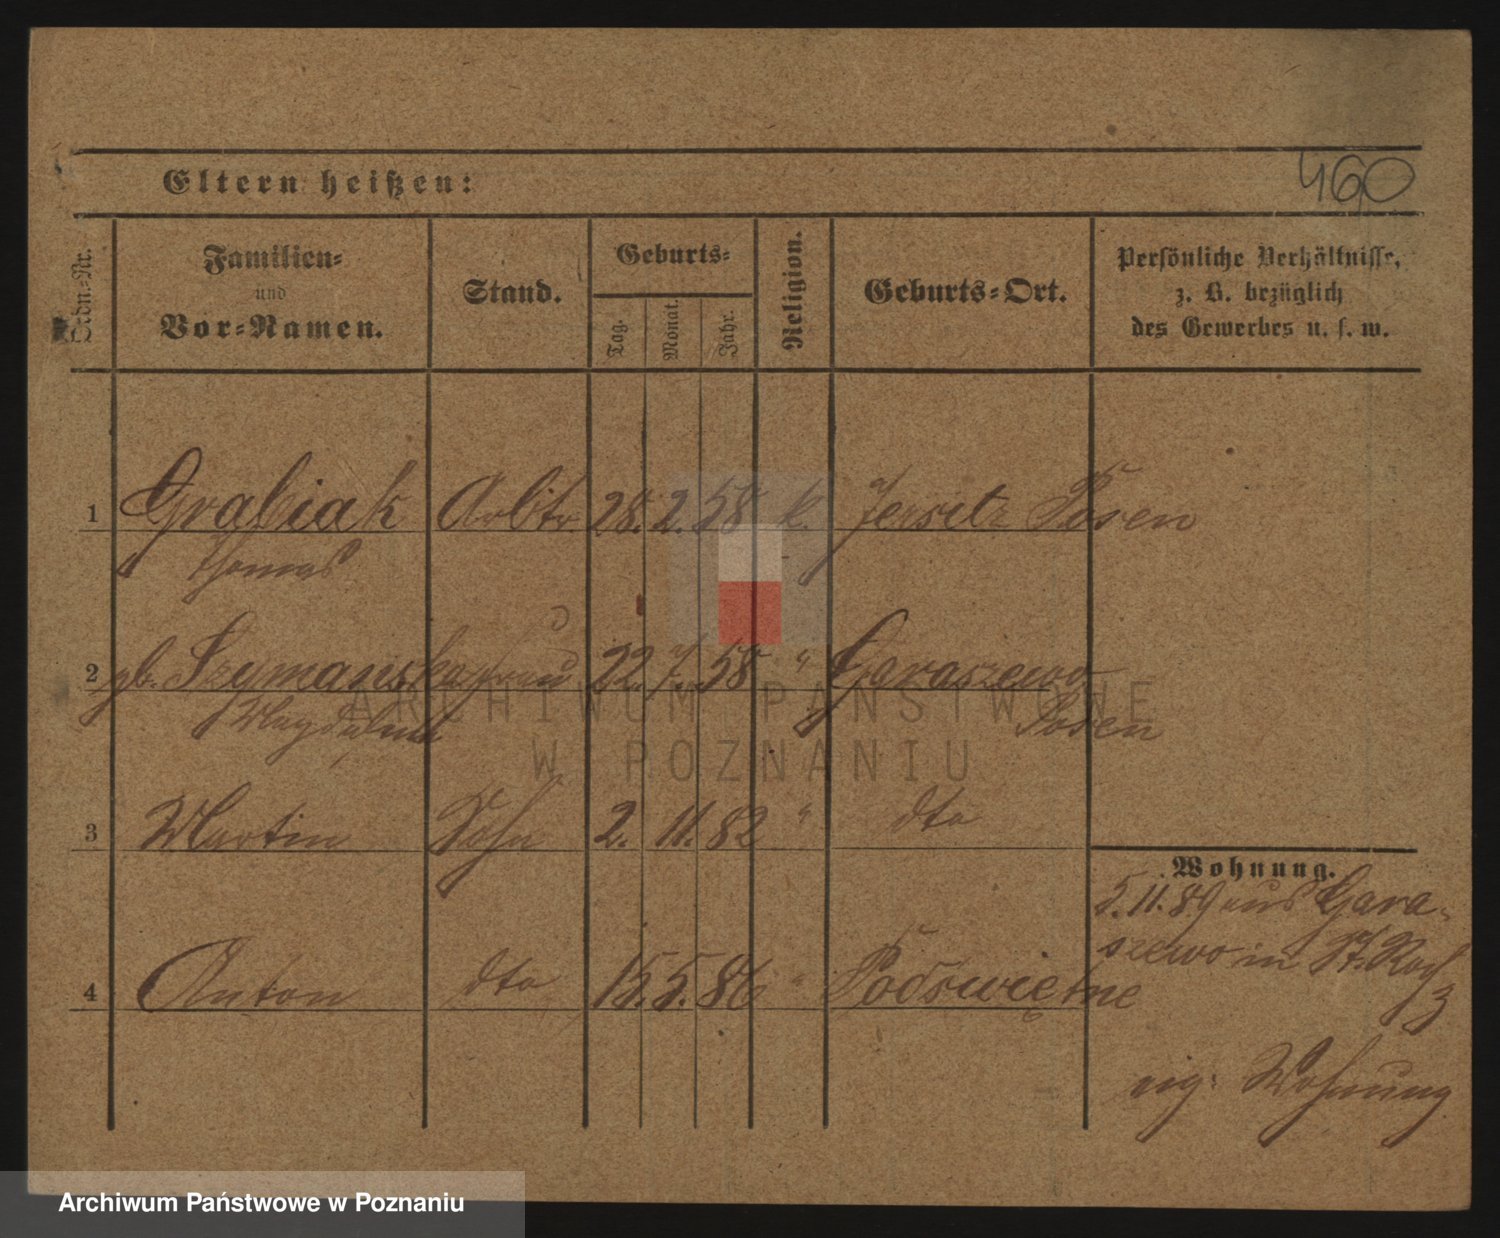 460
Eltern heißen:
Ordn.-Nr.
Familien-
und
Vor-Namen.
Stand.
Geburts-
Tag.
Monat.
Jahr.
Religion.
Geburts-Ort.
Persönliche Verhältnisse,
z. B. bezüglich
des Gewerbes u. s. w.
1 Grabiak Arbtr 28. 2. 58 k. Jersitz Posen
Thomas
2 gb. Szymanska frau 22. 7. 58 " Garaszewo
Magdalena Posen
ARCHIWUM PAŃSTWOWE
W POZNANIU
3 Martin Sohn 2. 11. 82 " dto
4 Anton dto 15. 5. 86 " Podswiętne
Wohnung.
5. 11. 89 aus Gara-
szewo in St. Roch
3
eig: Wohnung
Archiwum Państwowe w Poznaniu